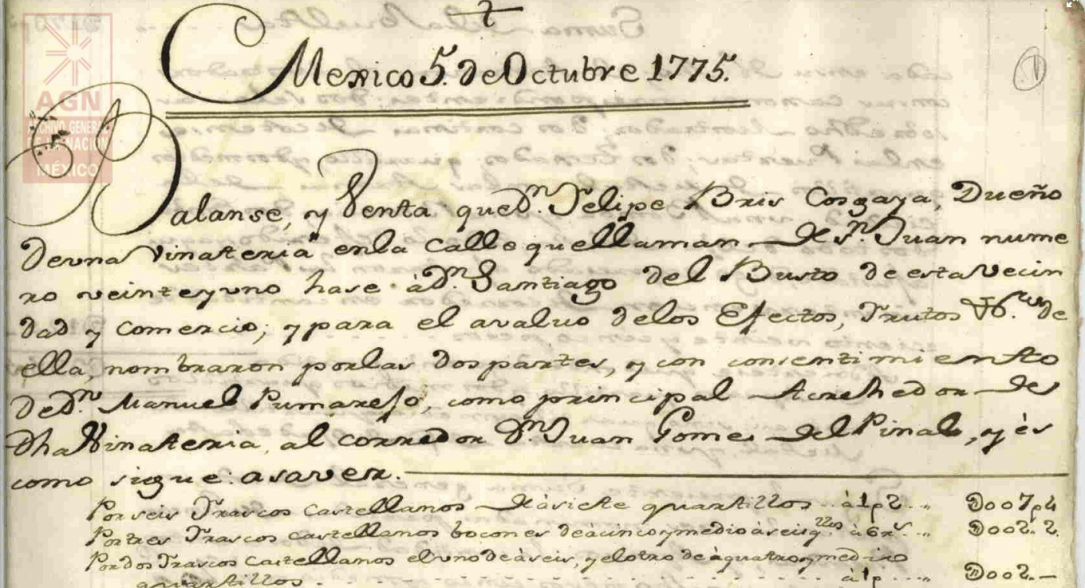 Mexico 5. de Octubre 1775.
AGN
ARCHIVO GENERAL
DE LA NACIÓN
MÉXICO
Balanse, y Venta que Dn. Felipe Bris Cosgaya, Dueño
de vna Vinateria en la Calle que llaman de Sn. Juan nume
ro veinte y uno hase à Dn. Santiago del Busto de esta Vecin
dad y Comercio; y para el avaluo de los Efectos, Frutos &c. de
ella, nombraron por las dos partes, y con consentimiento
de Dn. Manuel Pumarejo, como principal Acrehedor de
dha Vinateria, al corredor Dn. Juan Gomes del Pinal, y és
como sigue: asaver.
Por seis Frascos castellanos de à siete quartillos .. à 1p 2. .. D007p4
Por tres Frascos castellanos bocones de à cinco y medio à seis qllos à 6rs. .. D002.2
Por dos Frascos castellanos el uno de à seis, y el otro de à quatro y medio
quartillos à 1p .. D002.